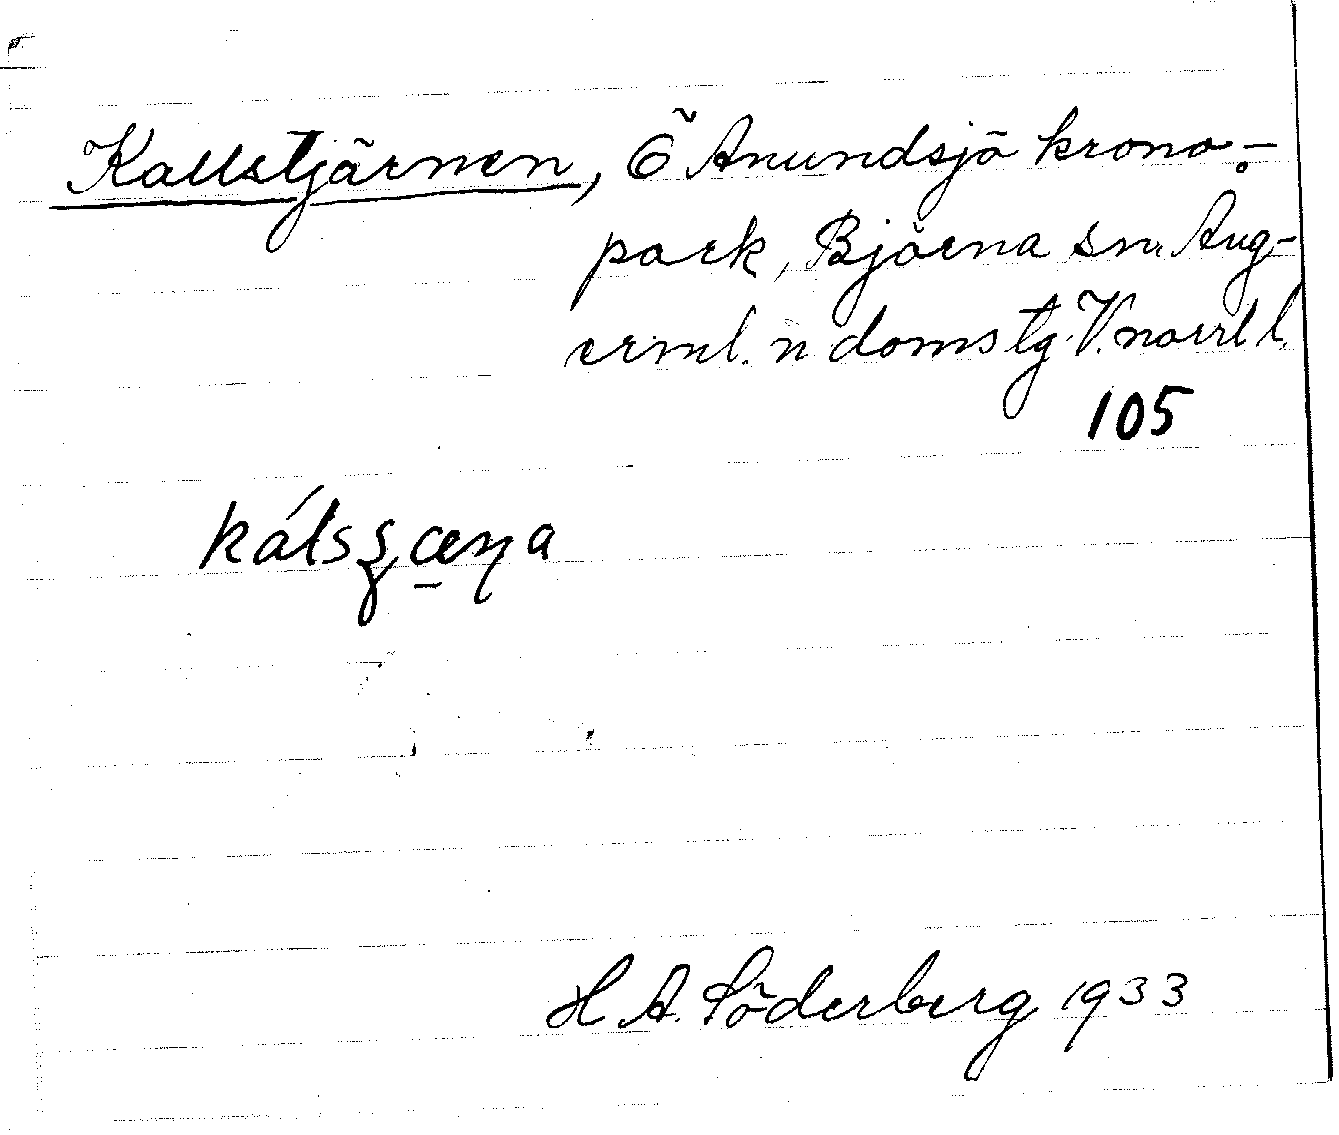 Kallstjärnen, Ö Anundsjö krono-
park, Björna sn. Ång-
erml. n domstg. V.norrl l.
105
kálsʂæ̱ɳa
H A. Söderberg 1933